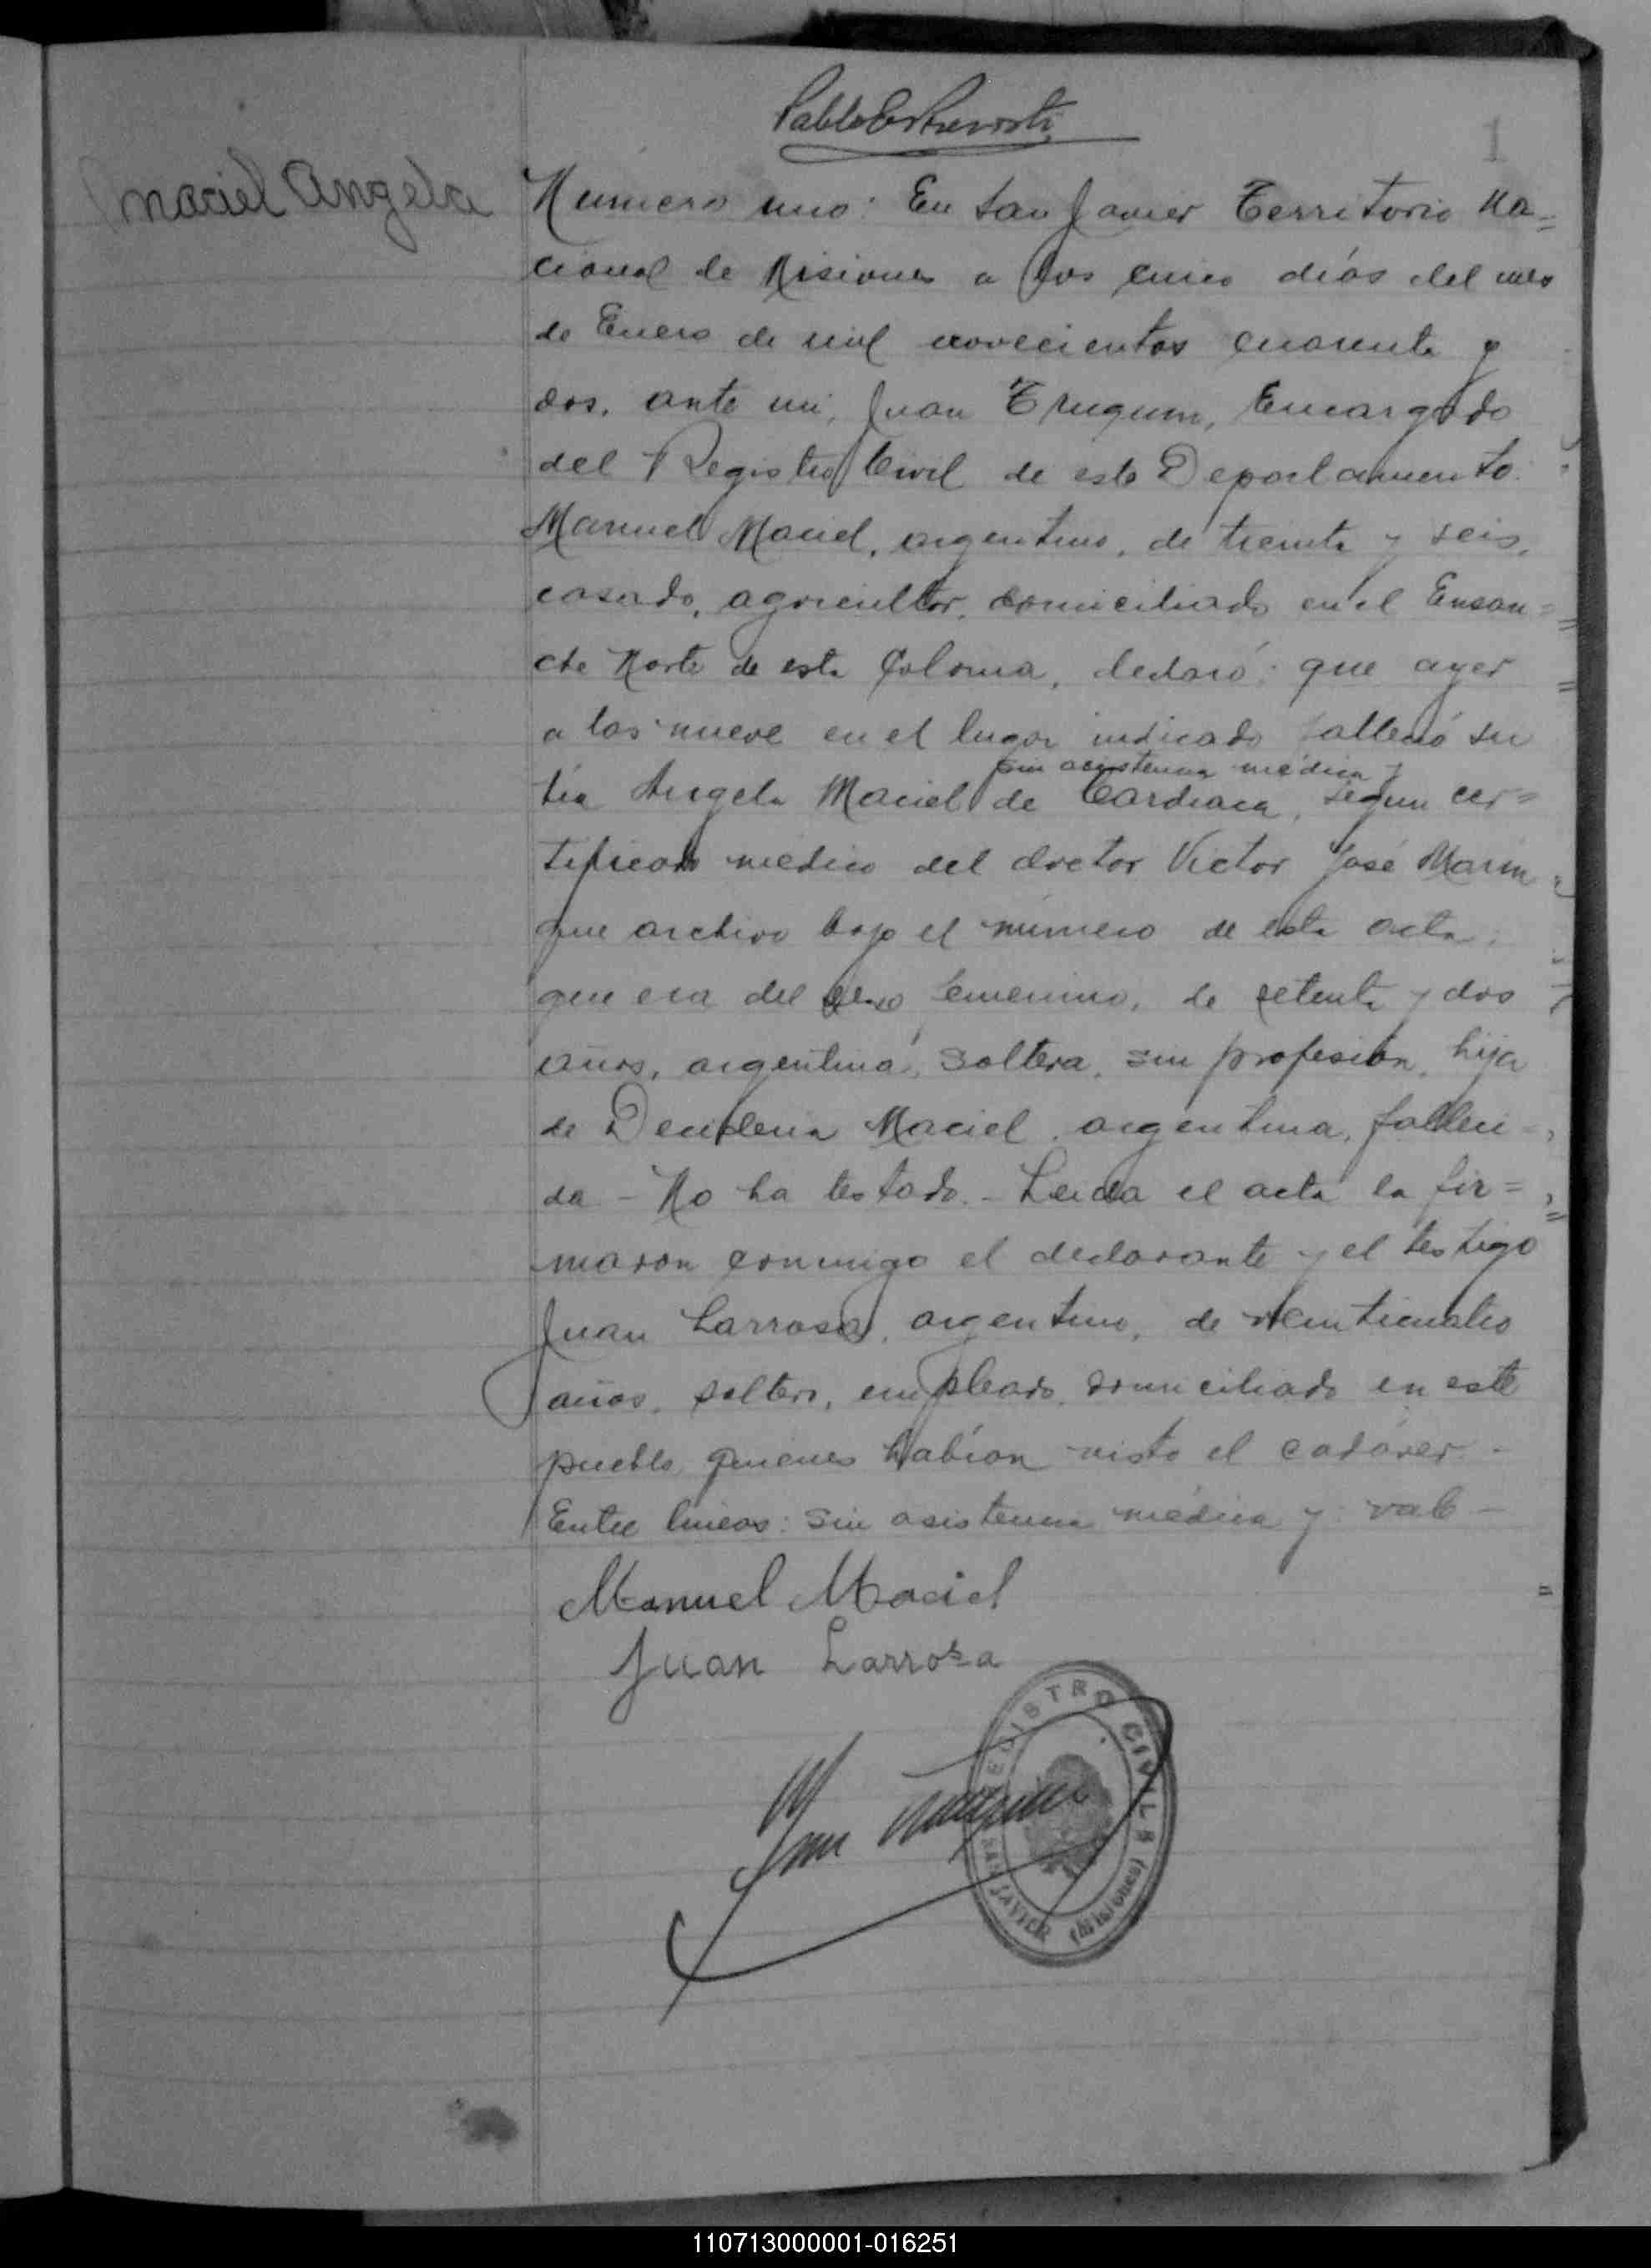 1
Maciel Angela
Número uno: En San Javier Territorio Na=
cional de Misiones a los cinco días del mes
de Enero de mil novecientos cuarenta y
dos, ante mi, Juan, Encargado
del Registro Civil de este Departamento:
Manuel Maciel, argentino, de treinta y seis,
casado, agricultor, domiciliado en el Ensan=
che Norte de esta Colonia, declaró: que ayer
a las nueve en el lugar indicado falleció su
sin asistencia médica y
tía Angela Maciel de Cardiaca, segun cer=
tificado médico del doctor Victor José Marin
que archivo bajo el número de esta acta;
que era del sexo femenino, de setenta y dos
años, argentina, soltera, sin profesión, hija
de Maciel, argentina, falleci=
da - No ha testado. - Leida el acta la fir=
maron conmigo el declarante y el testigo
Juan Larrosa, argentino, de veinticuatro
años, soltero, empleado, domiciliado en este
pueblo, quienes habían visto el cadáver. -
Entre lineas: sin asistencia médica y: vale -
Manuel Maciel
Juan Larrosa
REGISTRO CIVIL
SAN JAVIER (Misiones)
110713000001-016251